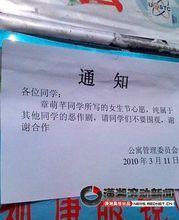 通 知
各位同学：
章萌芊同学所写的女生节心愿，纯属于
其他同学的恶作剧，请同学们不要围观，谢
谢合作
公寓管理委员会
2010年3月11日
潇湘晨动新闻
NEWS.REDNET.CN